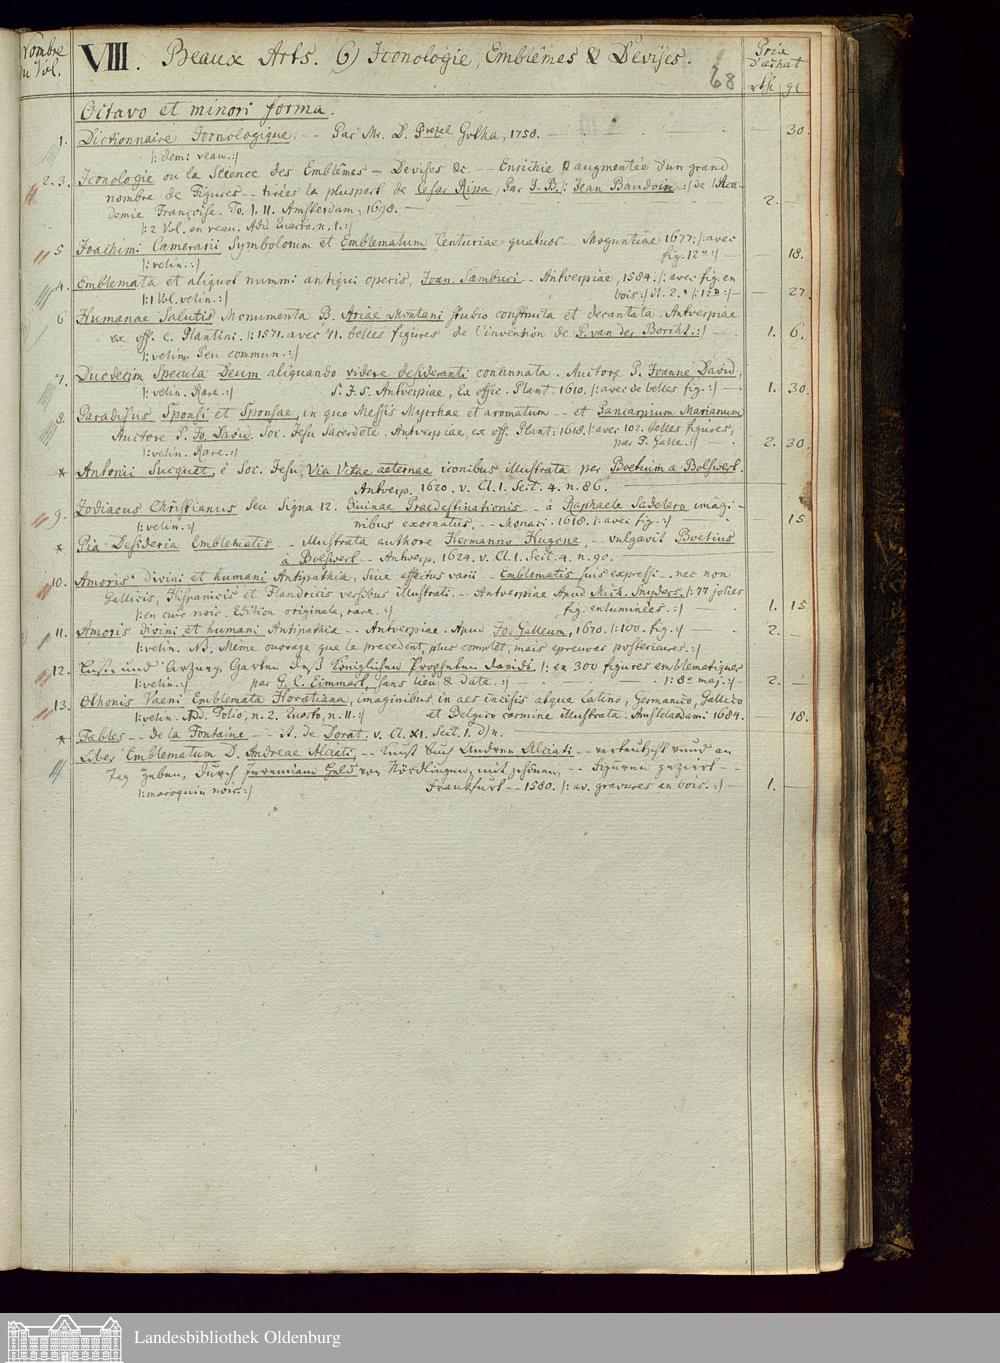 Nombre du Vol.
VIII. Beaux Arts. 6) Iconologie, Emblêmes & Devises.
Prix d'achat
68
rthl gr
Octavo et minori forma.
1. Dictionnaire Iconologique, -- Par Mr. D. Prezel Gotha, 1758. — — 30.
/: demi veau. :/
2. 3. Iconologie ou la Science des Emblêmes - Devises &c. -- Enrichie & augmentée d'un grand
nombre de Figures -- tirées la pluspart de Cesar Ripa, Par J. B. /: Jean Baudoin :/ de l'Aca-
demie Françoise. To. I. II. Amsterdam, 1698. — 2. —
/: 2 Vol. en veau. Add. Quarto. n. 1. :/
5 Joachimi Camerarii Symbolorum et Emblematum Centuriae quatuor -- Moguntiae 1677. /: avec
/: velin. :/ fig. 12° :/ — — 18.
4. Emblemata et aliquot nummi antiqui operis, Joan. Sambuci -- Antverpiae, 1584. /: avec fig. en
/: 1 Vol. velin. :/ bois :/ It. 2. /: 12° :/ — — 27.
6 Humanae Salutis Monumenta B. Ariae Montani studio constructa et decantata. Antverpiae
ex off. C. Plantini. /: 1571. avec 71. belles figures de l'invention de P. van der Borcht. :/ — 1. 6.
/: velin. Peu commun. :/
7. Duodecim Specula Deum aliquando videre desideranti concinnata. Auctore P. Joanne David,
/: velin. Rare. :/ S. J. S. Antverpiae, Ex offic. Plant. 1610. /: avec de belles fig. :/ — 1. 30.
8. Paradisus Sponsi et Sponsae, in quo Messis Myrrhae et aromatum -- et Pancarpium Marianum
Auctore P. Jo. David Soc. Jesu Sacerdote. Antverpiae, ex off. Plant. 1618. /: avec 102. belles figures,
/: velin. Rare. :/ par T. Galle. :/ — 2. 30.
* Antonii Sucquet, è Soc. Jesu, Via Vitae aeternae iconibus illustrata per Boetium a Bolswert.
Antwerp. 1620. v. Cl. 1. Sect. 4. n. 86.
9. Zodiacus Christianus seu Signa 12. divinae Praedestinationis -- à Raphaele Sadelero imagi-
/: velin :/ nibus exornatus, -- Monaci. 1618. /: avec fig. :/ — 15
* Pia Desideria Emblematis -- illustrata authore Hermanno Hugone, -- vulgavit Boetius
à Bolswert -- Antwerp. 1624. v. Cl. 1. Sect. 4. n. 90.
10. Amoris divini et humani Antipathia, Sive effectus varii -- Emblematis suis expressi -- nec non
Gallicis, Hispanicis et Flandricis versibus illustrati. -- Antverpiae Apud Mich. Snyders. /: 77 jolies
/: en cuir noir. Edition originale, rare. :/ fig. enluminées. :/ — 1. 15
11. Amoris divini et humani Antipathia -- Antverpiae. Apud Jo. Galleum, 1670. /: 100. fig. :/ — 2. —
/: velin. NB. Meme ouvrage que le precedent, plus complet, mais epreuves posterieures. :/
12. Lust und Artzney Garten deß Königlichen Propheten Davids /: en 300 figures emblematiques
/: velin :/ par G. C. Eimmart, sans lieu & date. :/ — /: 8° maj. :/ — 2. —
13. Othonis Vaeni Emblemata Horatiana, imaginibus in aes incisis atque Latino, Germanico, Gallico
/: velin. Add. Folio, n. 2. Quarto, n. 11. :/ et Belgico carmine illustrata. Amstelaedami 1684. 18.
* Fables -- de la Fontaine -- it. de Dorat. v. Cl. XI. Sect. 1. d) n. —
Liber Emblematum D. Andreae Alciati, -- Kunst buch Andree Alciati -- verteutscht unnd an
Tag geben, durch Jeremiam Held von Nördlingen, mit schönen, -- Figuren geziert --
/: maroquin noir. :/ Frankfurt -- 1580. /: av. gravures en bois. :/ — 1. —
Landesbibliothek Oldenburg